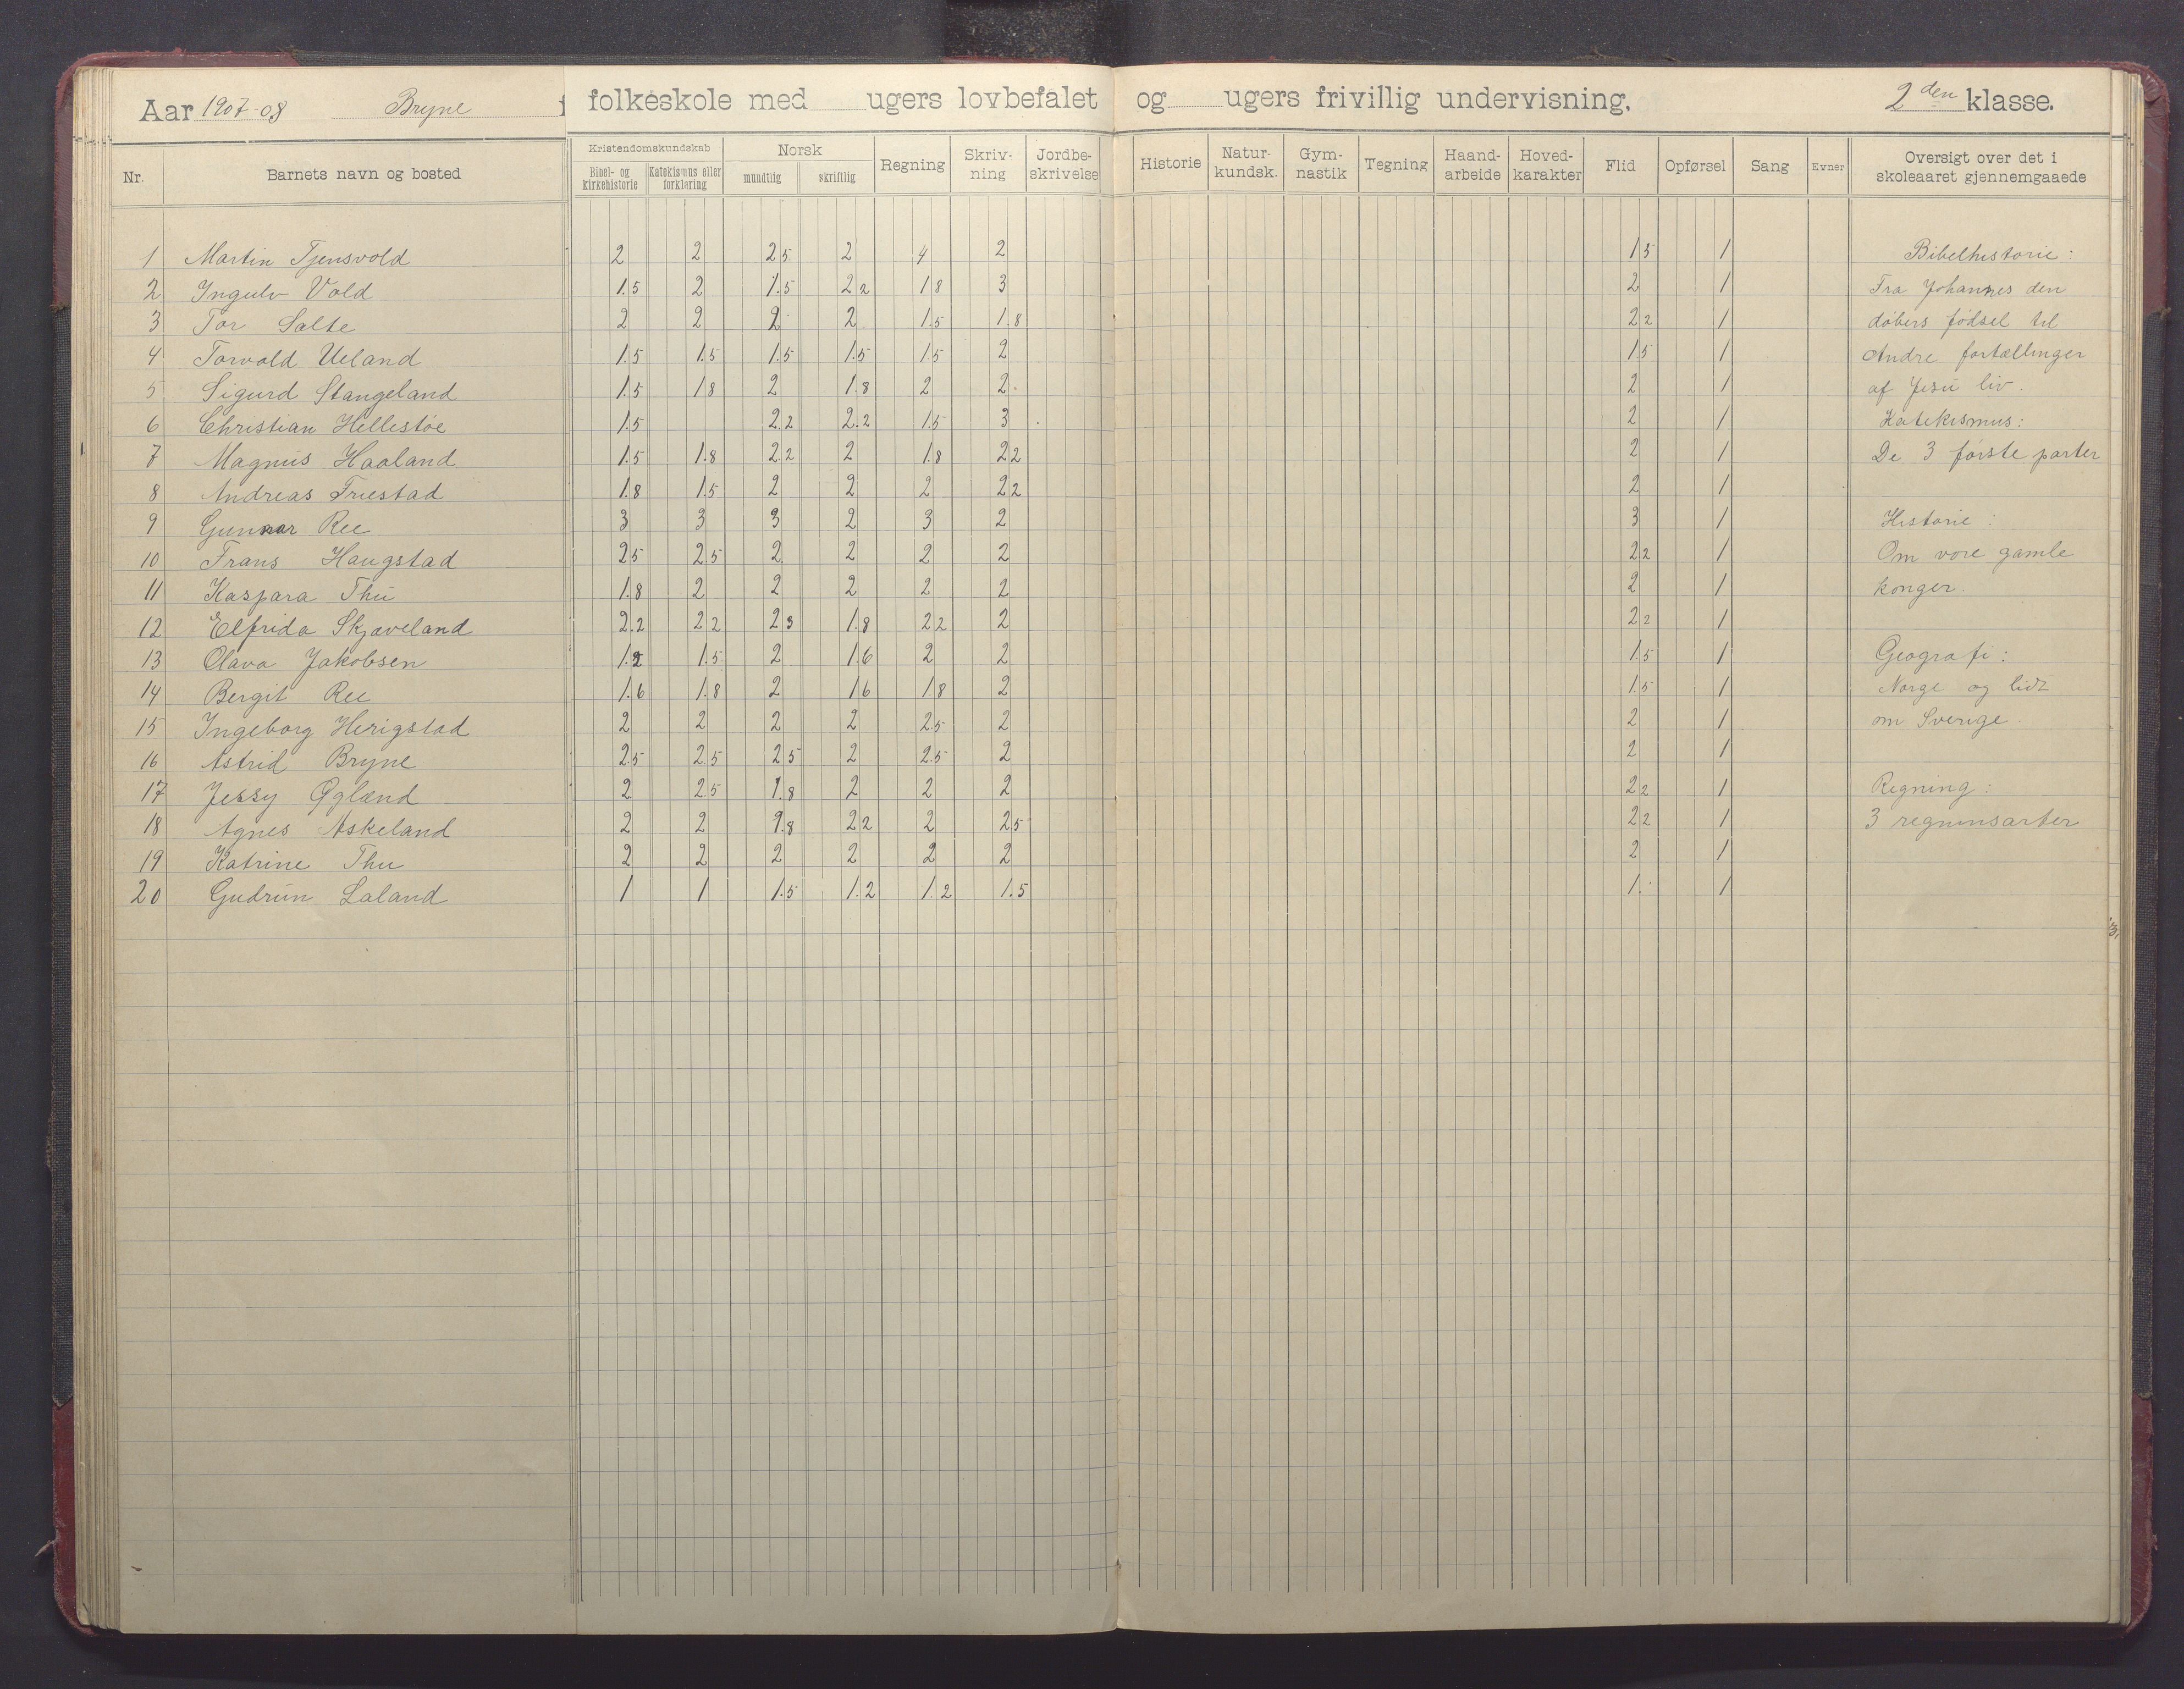 Aar 1907-08 Bryne folkeskole med ugers lovbefalet og ugers frivillig undervisning, 2den klasse.
Nr. Barnets navn og bosted Kristendomskundskab Bibel- og kirkehistorie Katekismus eller forklaring Norsk mundtlig skriftlig Regning Skriv-ning Jordbe-skrivelse Historie Natur-kundsk. Gym-nastik Tegning Haand-arbeide Hoved-karakter Flid Opførsel Sang Evner Oversigt over det i skoleaaret gjennemgaaede
1 Martin Tjensvold 2 2 2 5 2 4 2 1 5 1 Bibelhistorie:
2 Ingulv Vold 1.5 2 1.5 2 2 1 8 3 2 1 Fra Johannes den
3 Tor Salte 2 2 2 2 1.5 1.8 2 2 1 døbers fødsel til
4 Torvald Ueland 1.5 1.5 1.5 1.5 1 5 2 1.5 1 Andre fortællinger
5 Sigurd Stangeland 1.5 1 8 2 1.8 2 2 2 1 af Jesu liv.
6 Christian Hellestøe 1.5 2.2 2.2 1.5 3 2 1 Katekismus:
7 Magnus Haaland 1.5 1.8 2 2 2 1.8 2 2 2 1 De 3 første parter
8 Andreas Friestad 1.8 1.5 2 2 2 2 2 2 1
9 Gunnar Ree 3 3 3 2 3 2 3 1 Historie:
10 Frans Haugstad 2 5 2 5 2 2 2 2 2 2 1 Om vore gamle
11 Kaspara Thu 1.8 2 2 2 2 2 2 1 konger.
12 Elfrida Skjæveland 2.2 2 2 2 3 1.8 2 2 2 2 2 1
13 Olava Jakobsen 1.2 1.5 2 1 6 2 2 1.5 1 Geografi:
14 Bergit Ree 1.6 1.8 2 1 6 1.8 2 1.5 1 Norge og lidt
15 Ingeborg Herigstad 2 2 2 2 2.5 2 2 1 om Sverige.
16 Astrid Bryne 2.5 2.5 2 5 2 2.5 2 2 1
17 Jessy Øglænd 2 2.5 1.8 2 2 2 2 2 1 Regning:
18 Agnes Askeland 2 2 1.8 2 2 2 2 5 2 2 1 3 regnensarter
19 Katrine Thu 2 2 2 2 2 2 2 1
20 Gudrun Laland 1 1 1.5 1.2 1.2 1.5 1. 1